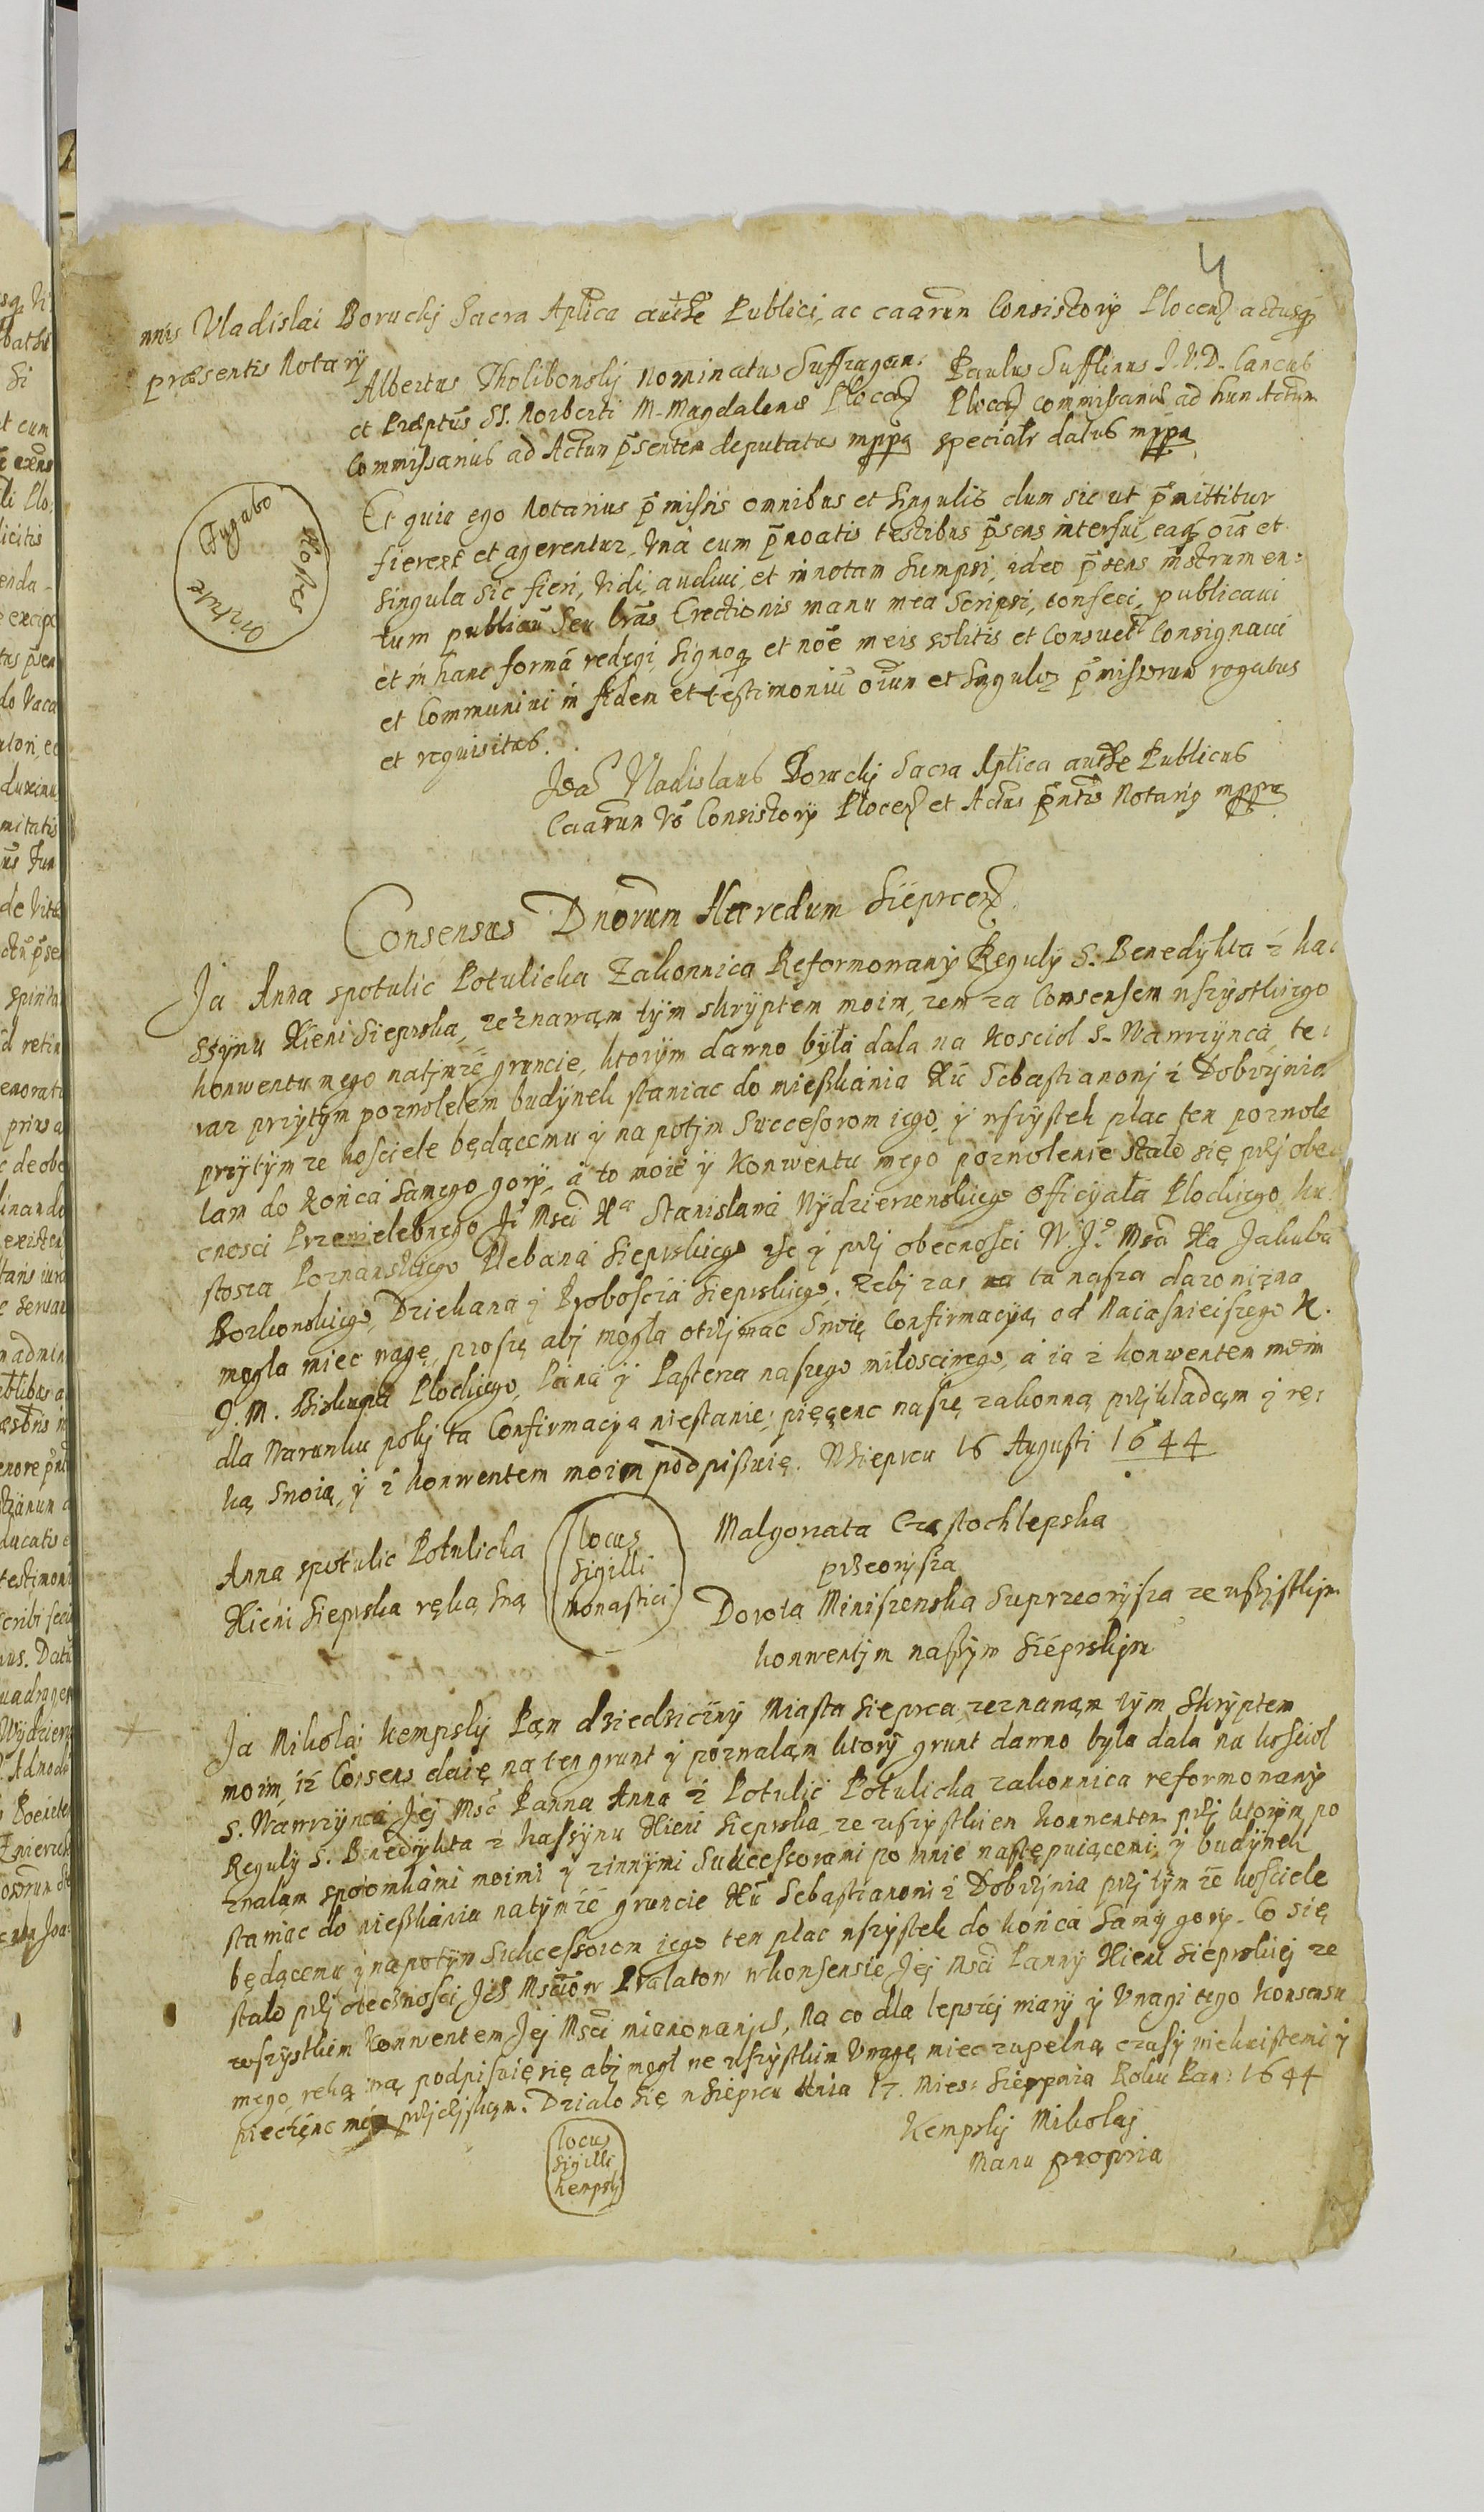 4
nnis Vladislai Boruckj Sacra Aplica authe Publici, ac caarum Consistorÿ Plocen actusq
præsentis Notarÿ
Albertus Tholibowskj Nominatus Suffragan: Paulus Sufflinus J.V.D. Cancus
et Præptus SS. Norberti M. Magdalenæ Plocen Plocen commissariús ad hun Actum
Commissarius ad Actum psentem deputatus mppa specialr datus mppa
Fugabo Hostes virtute
Et quia ego Notarius pmissis omnibus et singulis dum sic ut pmittitur
fierent et agerentur, vna cum pnoatis testibus psens interfui, eaq oia et
singula sic fieri, vidi, audiui, et in notam sumpsi, ideo psens instrumen:
tum publicu seu lras Erectionis manu mea scripsi, confeci, publicaui
et in hanc formã redegi, signoq et noe meis solitis et consuet consignaui
et Communiui in fidem et testimoniũ oium et singulor pmissorum rogatus
et requisitus.
Joa Vladislaus Boruckj Sacra Aplica authe Publicus
Caarum vo Consistorÿ Plocen et Actus pntis Notarÿ mppa
Consensus Dnorum Hæredum Sieprcen
Ja Anna spotulic Potulicka Zakonnica Reformowanÿ Regulÿ S. Benedÿkta z ka:
ssÿnu Xieni Sieprska, zeznawąm tÿm skrÿptem moim, zem za Consensem wszystkiego
konwentu mego natjmze gruncie, ktorÿm dawno bÿła dala na kosciol S. Wawrzÿnca, te:
raz przÿtÿm pozwolełem budÿnek stawiac do mießkania Xu Sebastianowj z Dobrzÿnia
przÿtÿm ze kosciele będącemu ÿ na potjm Succesorom iego, ÿ wszÿstek plac ten pozwole
lam do końca samego gorÿ, a to moie ÿ Konwentu mego pozwolenie stalo się przj obe
cnosci Przewielebnego Jo Msci Xa Stanislawa Wÿdzierzewskiego Officÿała Plockiego, ku:
stosza Poznanskiego Plebana Sieprskiego etc ÿ przj obecnosci W. Jo Msci Xa Jakuba
Borkowskiego, Dziekana ÿ Proboscia Sieprskiego. Zebj zas ta nasza darowizna
mogla miec wagę, proszę abj mogla otrzjmac Swoię Confirmacÿą od Naiasnieiszego X.
J. M. Biskupa Plockiego, Pana ÿ Pasterza naszego miłosciwego, a ia z konwentem moim
dla Warunku pokj ta Confirmacÿa niestanie, pięczęnc naszę zakonną przjkladąm ÿ rę:
ką Swoią, ÿ z konwentem moim podpißuię. Wsieprcu 16 Augusti 1644
Anna spotulic Potulicka
Xieni Sieprska ręką Swą
locus
Sigilli
Monastici
Malgorzata Czystochlepska
przeorÿsza
Dorota Miniszewska Suprzeorÿsza ze wßÿstkjm
konwentjm naßÿm Sieprskjm
Ja Mikolaj Kempskj Pąn dziedzicznÿ Miasta Sieprca zeznawąm tÿm Skrÿptem
moim, iz Cõsens daię na ten grunt ÿ pozwaląm ktorÿ grunt dawno byla dala na kosciol
S. Wawrzÿnca Jej Msc Panna Anna z Potulic Potulicka zakonnica reformowanÿ
Regulÿ S. Benedÿkta z Kassÿnu Xieni Sieprska, ze wszÿstkiem konwentem przj ktorÿm po
zwalam spotomkami moimi ÿ zinnÿmi Sukcessorami po mnie następuiącemi, ÿ budÿnek
stawiac do mießkania natÿmze gruncie Xu Sebastianowi z Dobrzjnia przj tÿm ze kosciele
będącemu ÿ napotÿm Sukcessorom iego ten plac wszÿstek do końca samÿ gorÿ. Co się
stalo przj obecznosci Ich Mscióm Pralatow wkonsensie Jej Msci Pannÿ Xieni Sieprskiej ze
wszÿstkim Konwentem Jej Msci mianowanjch, Na co dla lepszej wiarÿ ÿ Vwagi tego konsensu
mego, ręką swą podpisuię się abj mogł we wszÿstkim Vwagę miec zupelną czasÿ wiekuistemi ÿ
pieczęnc mą przjcjskąm. Dzialo się w Sieprcu dnia 17. Mies: Sierpnia Roku Pan: 1644
Kempskj Mikolaj
Manu propria
locus
Sigilli
Kempskj